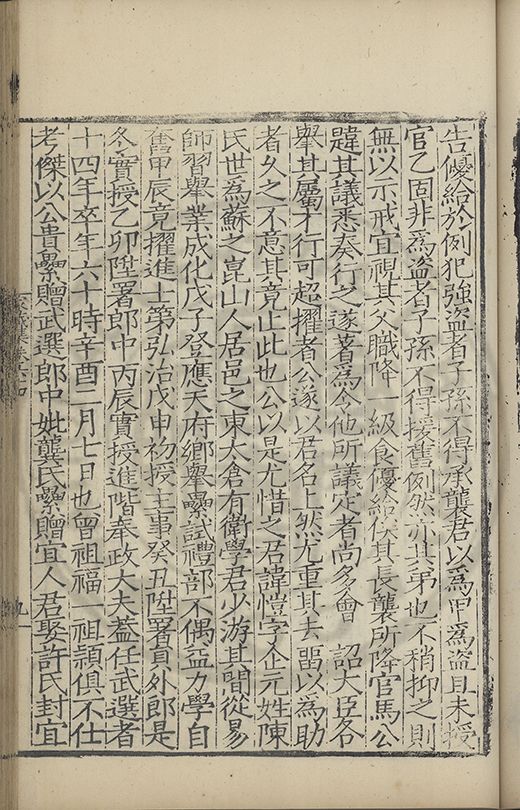 告優給於例犯強盗者子孫不得承襲君以為甲為盗且未授
官乙固非為盗者子孫不得援舊例然亦其弟也不稍抑之則
無以示戒宜視其父職降一級食優給俟其長襲所降官馬公
韙其議悉奏行之遂著為令他所議定者尚多會 詔大臣各
舉其屬才行可超擢者公遂以君名上然尤重其去畱以為助
者久之不意其竟止此也公以是尤惜之君諱愷字企元姓陳
氏世為蘇之崑山人居邑之東太倉有衛學君少游其間從易
師習舉業成化戊子登應天府鄉舉纍試禮部不偶益力學自
奮甲辰竟擢進士第弘治戊申初授主事癸丑陞署員外郎是
冬實授乙卯陞署郎中丙辰實授進階奉政大夫蓋任武選者
十四年卒年六十時辛酉二月七日也曾祖福一祖頴俱不仕
考傑以公貴纍贈武選郎中妣龔氏纍贈宜人君娶許氏封宜